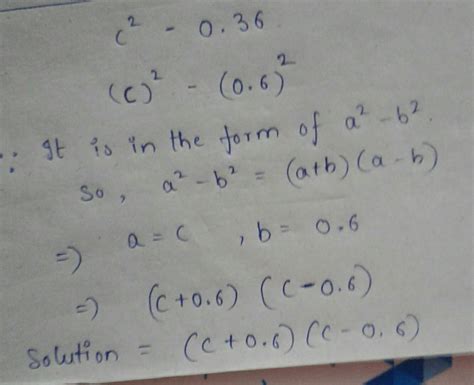 c² - 0.36
(c)² - (0.6)²
∵ It is in the form of a² - b².
so, a² - b² = (a+b)(a-b)
⇒ a = c , b = 0.6
⇒ (c+0.6) (c-0.6)
Solution = (c+0.6)(c-0.6)